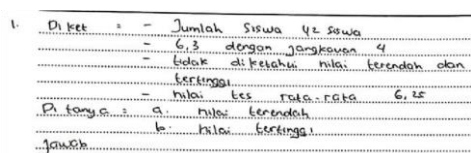 1. Diket : - Jumlah Siswa 42 siswa
- 6,3 dengan jangkauan 4
- tidak diketahui nilai terendah dan
tertinggi
- nilai tes rata-rata 6,25
Ditanya : a. nilai terendah
b. nilai tertinggi
Jawab